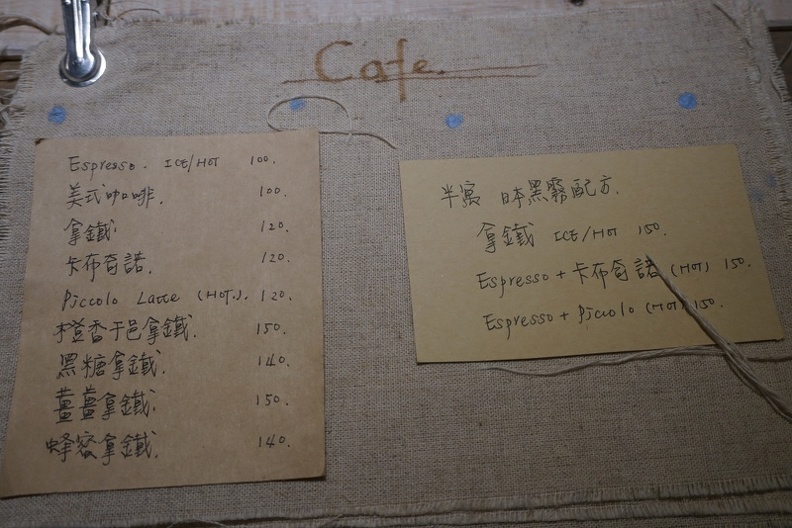 Cafe.
Espresso. ICE/HOT 100.
美式咖啡. 100.
拿鐵. 120.
卡布奇諾. 120.
Piccolo Latte (HOT). 120.
橙香干邑拿鐵. 150.
黑糖拿鐵. 140.
薑薑拿鐵. 150.
蜂蜜拿鐵. 140.
半寓 日本黑霧配方.
拿鐵 ICE/HOT 150.
Espresso + 卡布奇諾 (HOT) 150.
Espresso + Piccolo (HOT) 150.